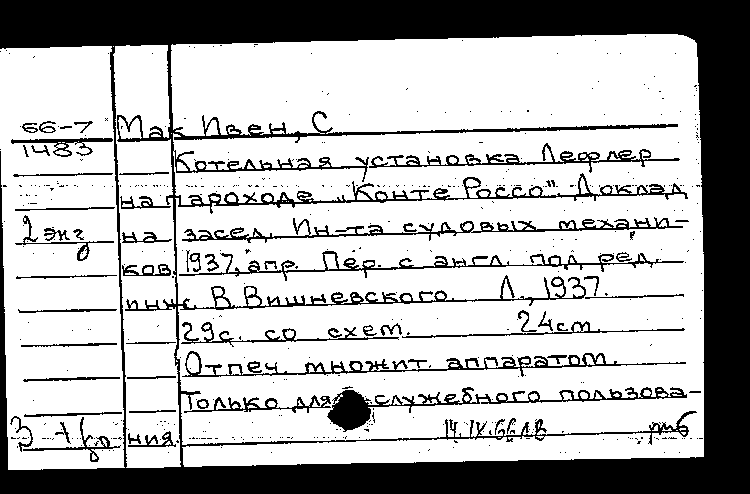 66-7 Мак Ивен, С
1483
Котельная установка Лефлер
на пароходе „Конте Россо". Доклад
2 экз на засед. Ин-та судовых механи-
ков. 1937, апр. Пер. с англ. под ред.
инж. В. Вишневского. Л., 1937.
29с. со схем. 24см.
Отпеч. множит. аппаратом.
Только для служебного пользова-
ния.
14.IX.66